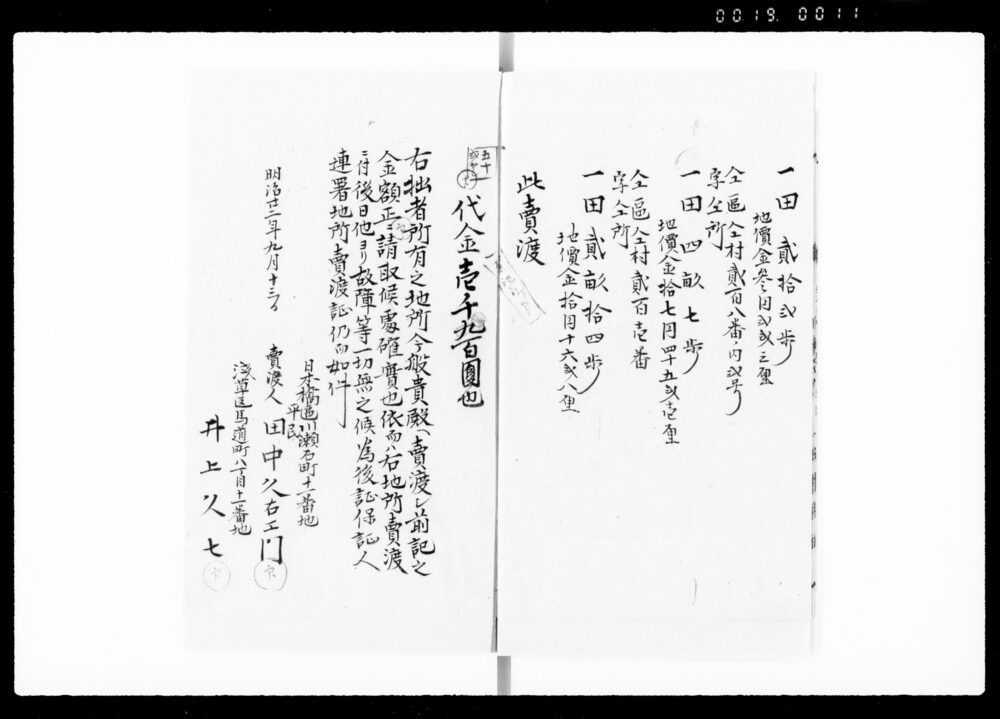 00.19. 0011
一田 貳拾弐歩
地價金参円弐戔三厘
仝區仝村貳百八番ノ内弐号
字仝所
一田 四畝七歩
地價金拾七円四十五戔壱厘
仝區仝村貳百壱番
字仝所
一田 貳畝拾四歩
地價金拾円十六戔八厘
此賣渡
五十
代金壱千九百圓也
右拙者所有之地所今般貴殿ヘ賣渡シ前記之
金額正ニ請取候處確實也依而ハ右地所賣渡
ニ付後日他ヨリ故障等一切無之候為後証保証人
連署地所賣渡証仍而如件
明治廿二年九月十三日
日本橋區川瀬石町十一番地
平民
賣渡人 田中久右エ門
浅草区馬道町八丁目十一番地
井上久七